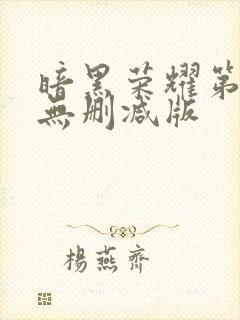 暗黑荣耀第
無删减版
楊燕齊